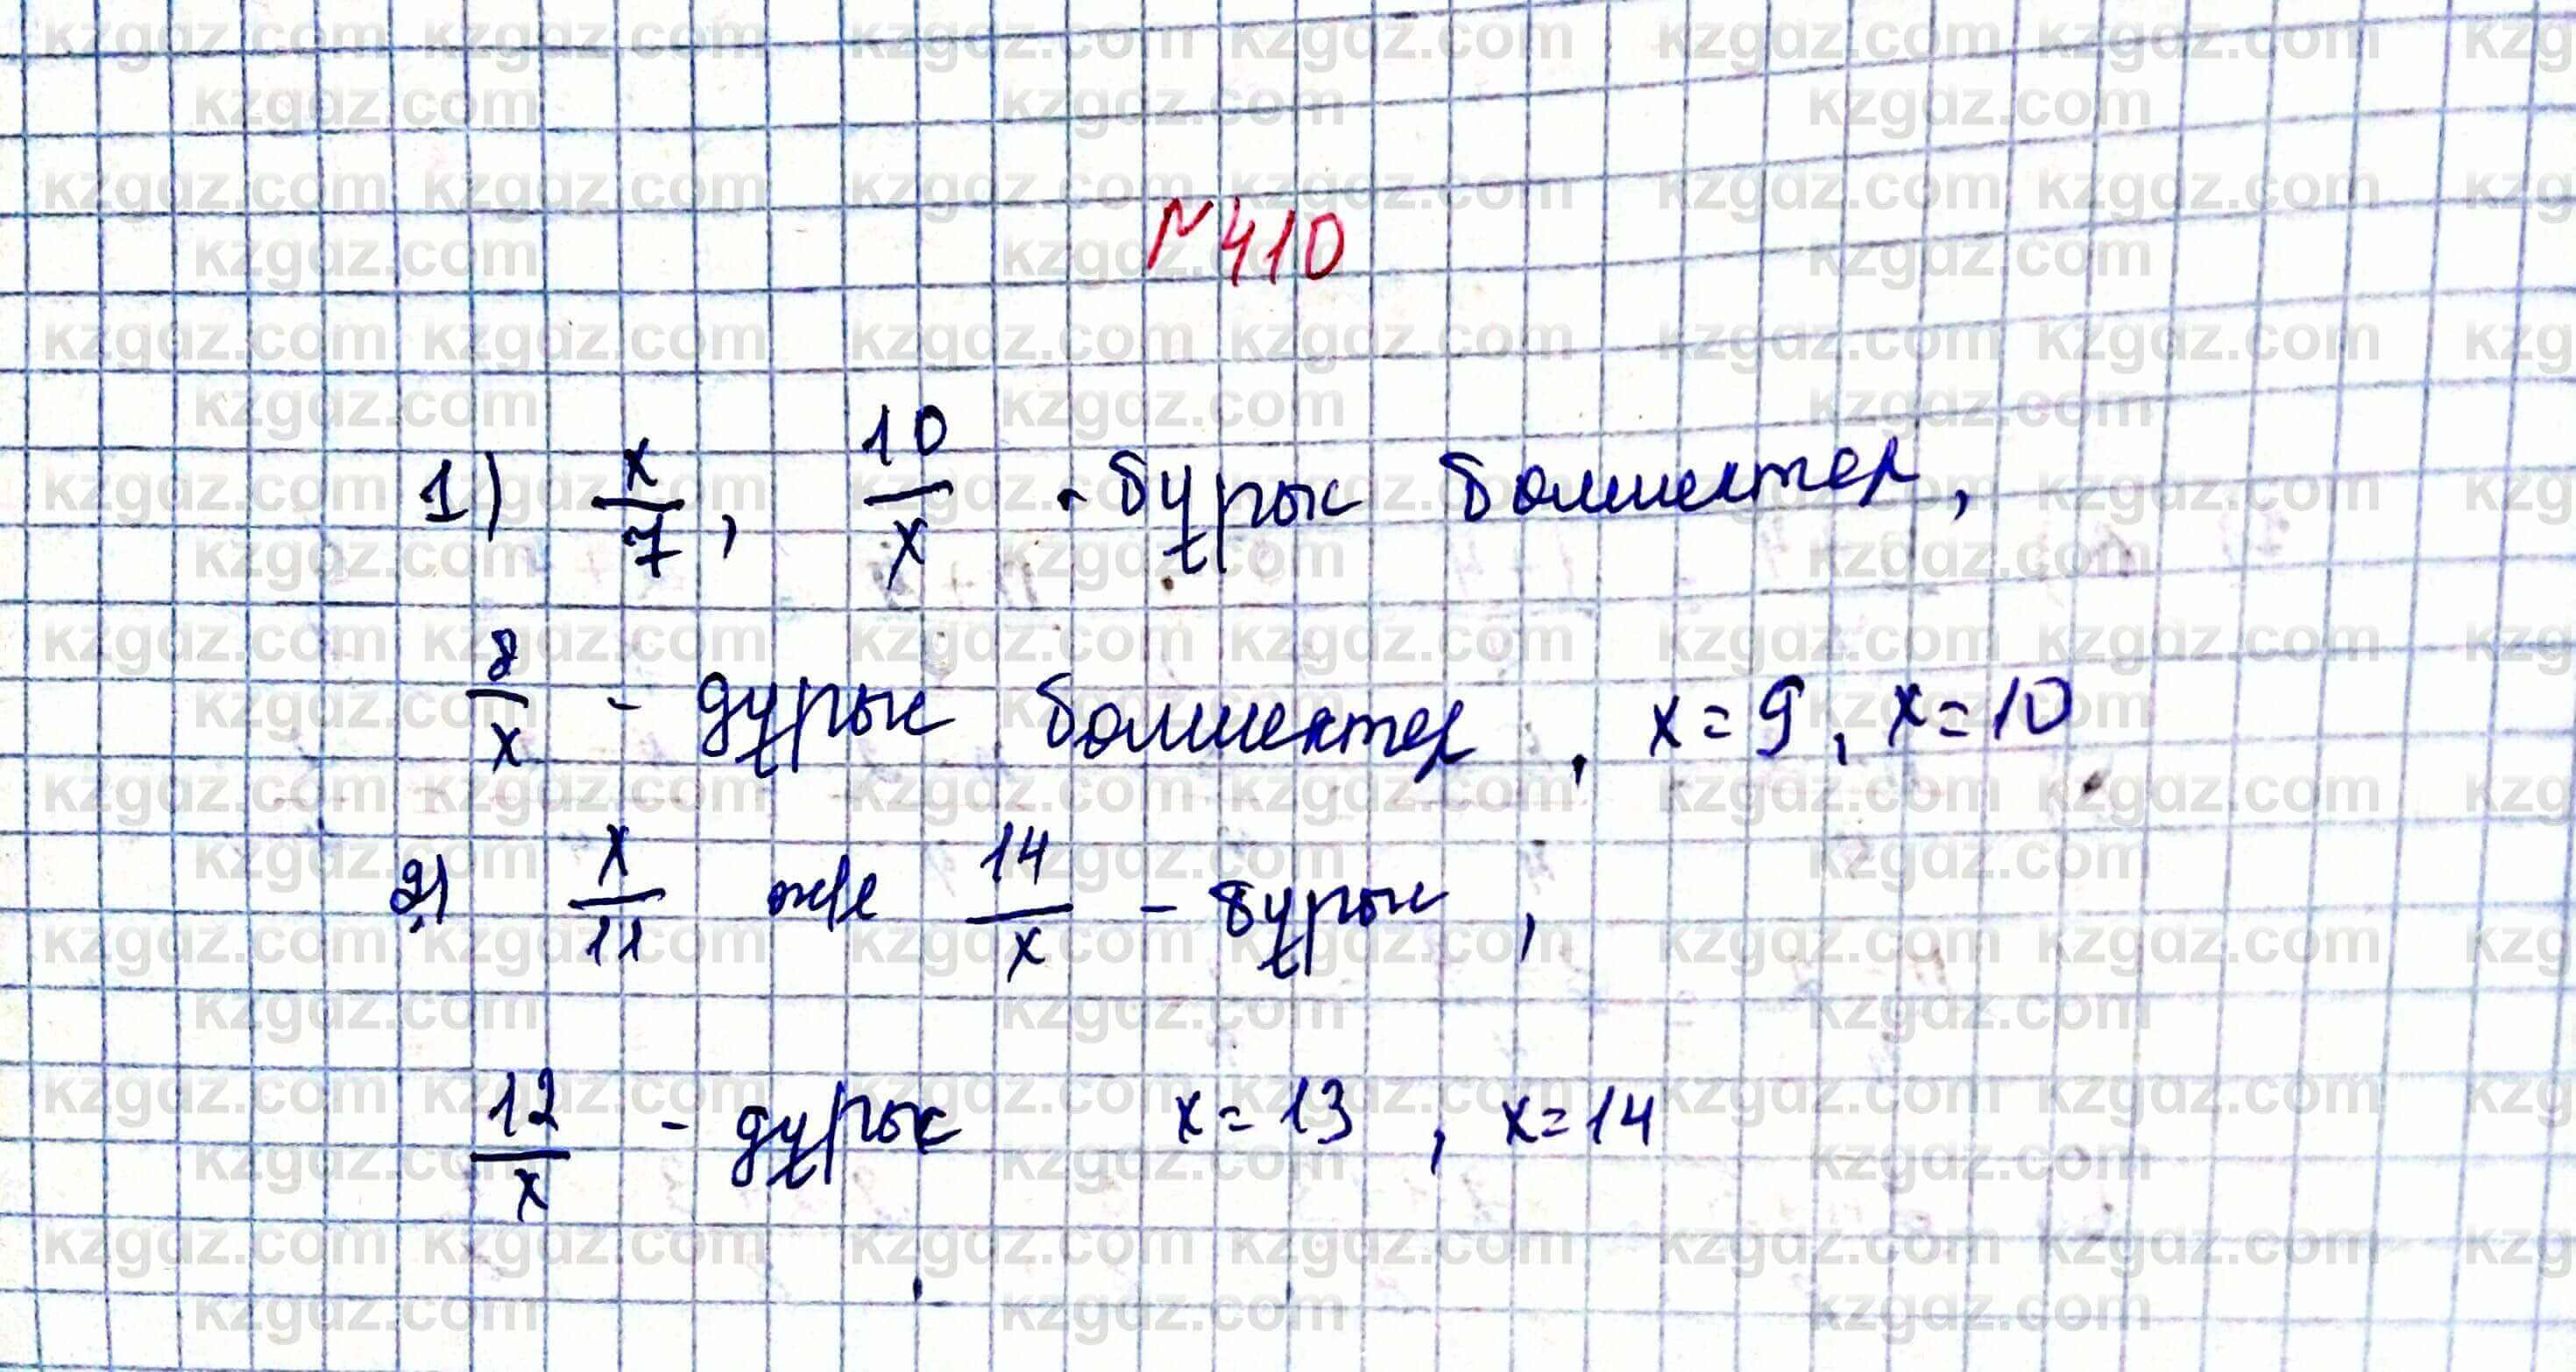 №410
1) x/7, 10/x - бұрыс бөлшектер,
8/x - дұрыс бөлшектер, x=9, x=10
2) x/11 ж/е 14/x - бұрыс,
12/x - дұрыс x=13, x=14
kzgdz.com